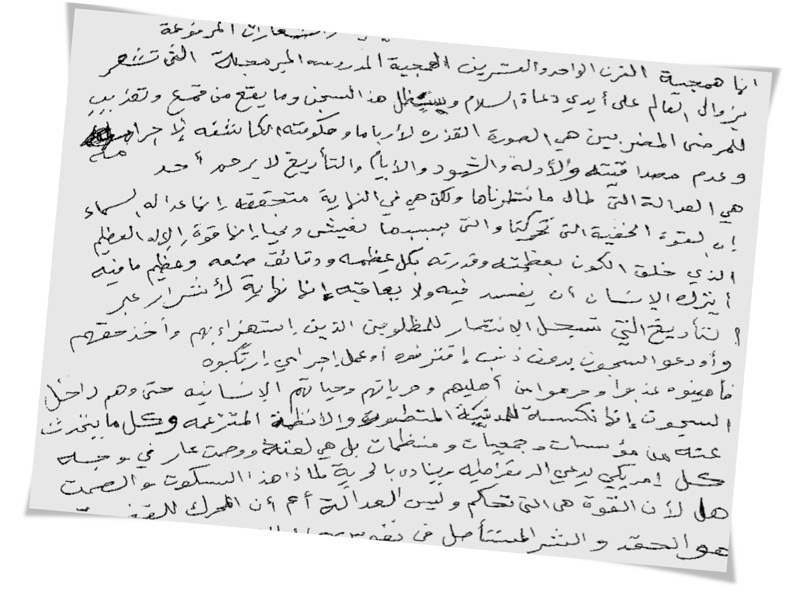 المرفوعة
انها همجية القرن الواحد والعشرين الهمجية المدروسه المبرمجة التي تشعر
بزوال العالم على أيدي دعاة السلام و هذا السجن وما يقع من قمع وتعذيب
للمرضى المضربين هي الصورة القذره لأوباما وحكومته الكاشفه لإجرامه
وعدم مصداقيته والأدلة والشهود والأيام والتأريخ لا يرحم أحد
هي العدالة التي طال ما نتظرناها ولكن هي في النهاية متحققه إنها عدالة السماء
إن لقوة الخفية التي تحركنا والتي بسببها نعيش ونحيا إنها قوة الإله العظيم
الذي خلق الكون بعظمته وقدرته بكل عظمه ودقائق صنعه وعظيم مافيه
أيترك الإنسان أن يفسد فيه ولا يعاقبه إنها نهاية لأشرار عبر
التأريخ التي تسجل الإنتصار للمظلومين الذين إستهزاء بهم وأخذ حقهم
وأودعو السجون بدون ذنب إقترفوه أو عمل إجرامي إرتكبوه
فأهينوه عذبوا وحرموا من أهليهم وحرياتهم وحياتهم الإنسانيه حتى وهم داخل
السجون إنها نكسة للمدنية المتطوره والأنظمة المتزعمه وكل ما ينحدث
عنه من مؤسسات وجمعيات ومنظمات بل هي لعنة ووصمت عار في وجه
كل إمريكي يدعي الديمقراطيه وينادي بالحرية لماذا هذا السكوت والصمت
هل لأن القوة هي التي تحكم وليس العدالة أم أن المحرك
هو الحقد والشر المتأصل في